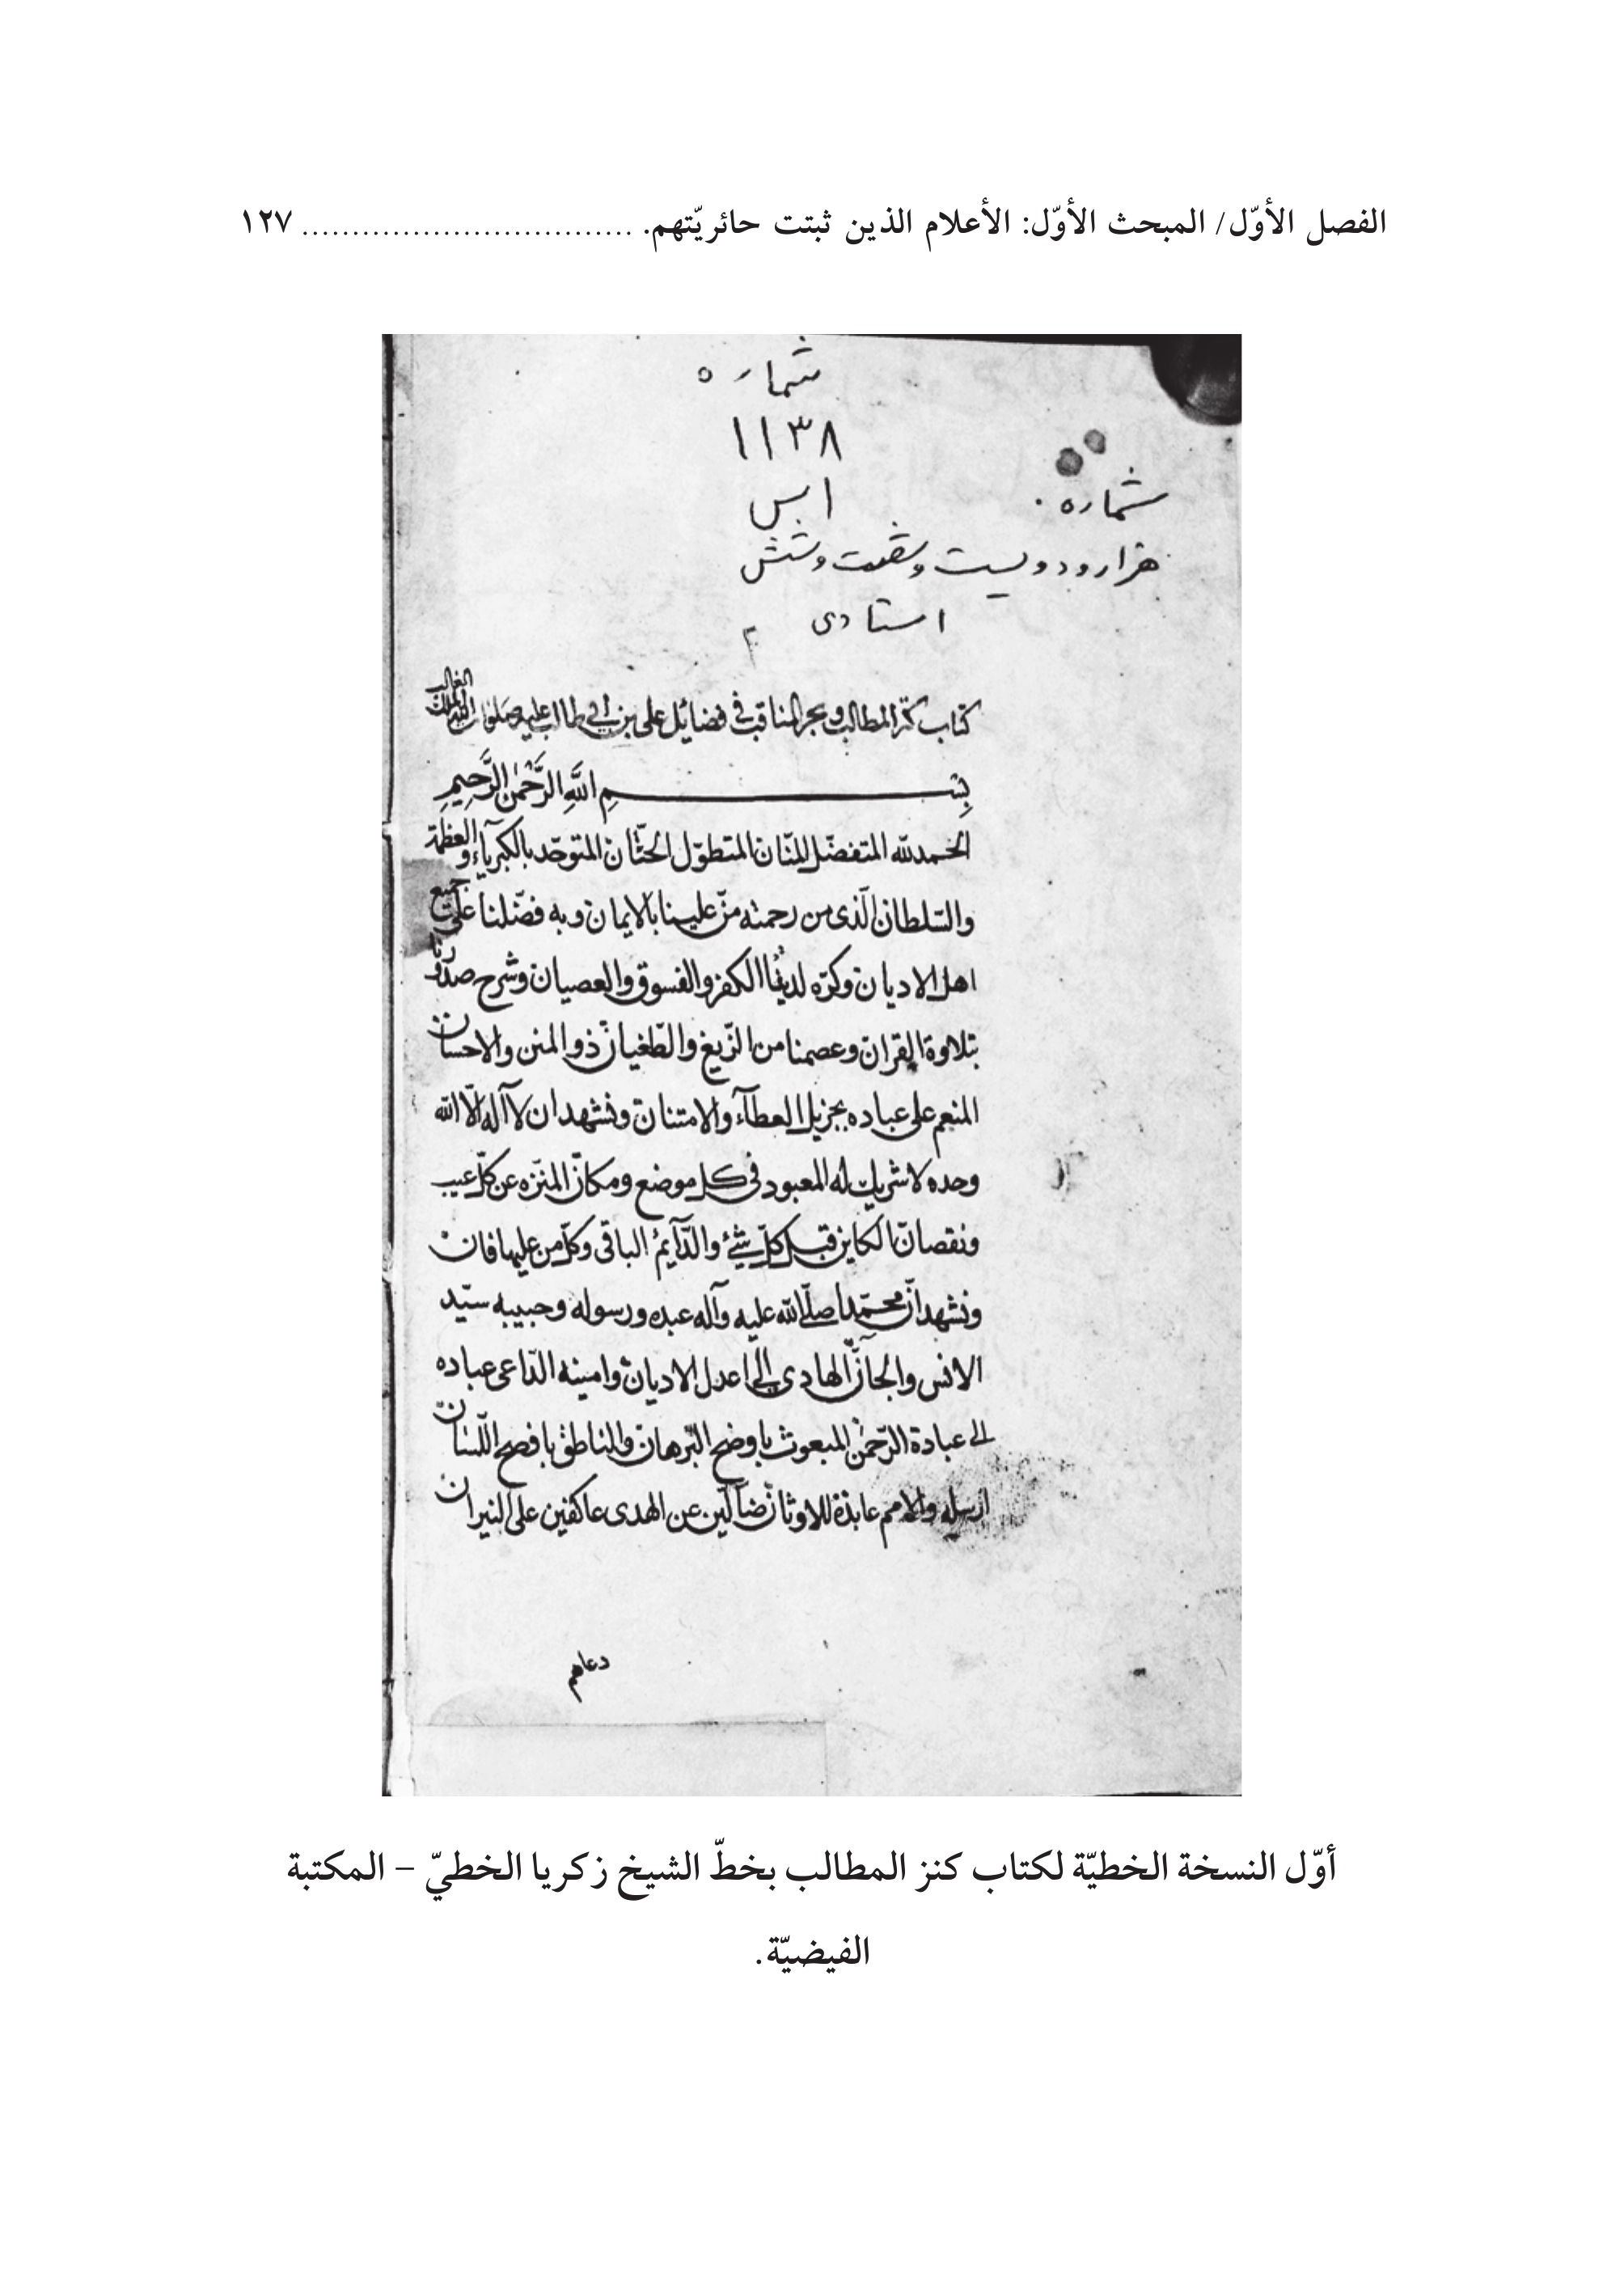 الفصل الأوّل/ المبحث الأوّل: الأعلام الذين ثبتت حائريّتهم. ................................. ١٢٧
شماره
١١٣٨
شماره
هزار و دویست و شصت و شش
استادی
کتاب کنز المطالب وبحر المناقب فی فضائل علی بن ابی طالب علیه صلوات الله الملک الغالب
بِسْمِ اللَّهِ الرَّحْمٰنِ الرَّحِيمِ
الحمد لله المتفضّل المنّان المتطوّل الحنّان المتوحّد بالكبرياء والعظمة
والسّلطان الّذى من رحمته منّ علينا بالايمان وبه فضّلنا على جميع
اهل الاديان وكرّه لدينا الكفر والفسوق والعصيان وشرح صدورنا
بتلاوة القران وعصمنا من الزّيغ والطّغيان ذو المنن والاحسان
المنعم على عباده بجزيل العطآء والامتنان ونشهد ان لا آله الّا الله
وحده لا شريك له المعبود فى كل موضع ومكان المنزّه عن كلّ عيب
ونقصان الكاين قبل كلّ شئ والدّآيم الباقى وكلّ من عليها فان
ونشهد انّ محمّدا صلّى الله عليه وآله عبده ورسوله وحبيبه سيّد
الانس والجانّ الهادى الى اعدل الاديان وامينه الدّاعى عباده
الى عبادة الرّحمن المبعوث باوضح البرهان والناطق بافصح اللّسان
ارسله والامم عابدة للاوثان ضآلّين عن الهدى عاكفين على النيران
دعاهم
أوّل النسخة الخطيّة لكتاب كنز المطالب بخطّ الشيخ زكريا الخطيّ – المكتبة
الفيضيّة.